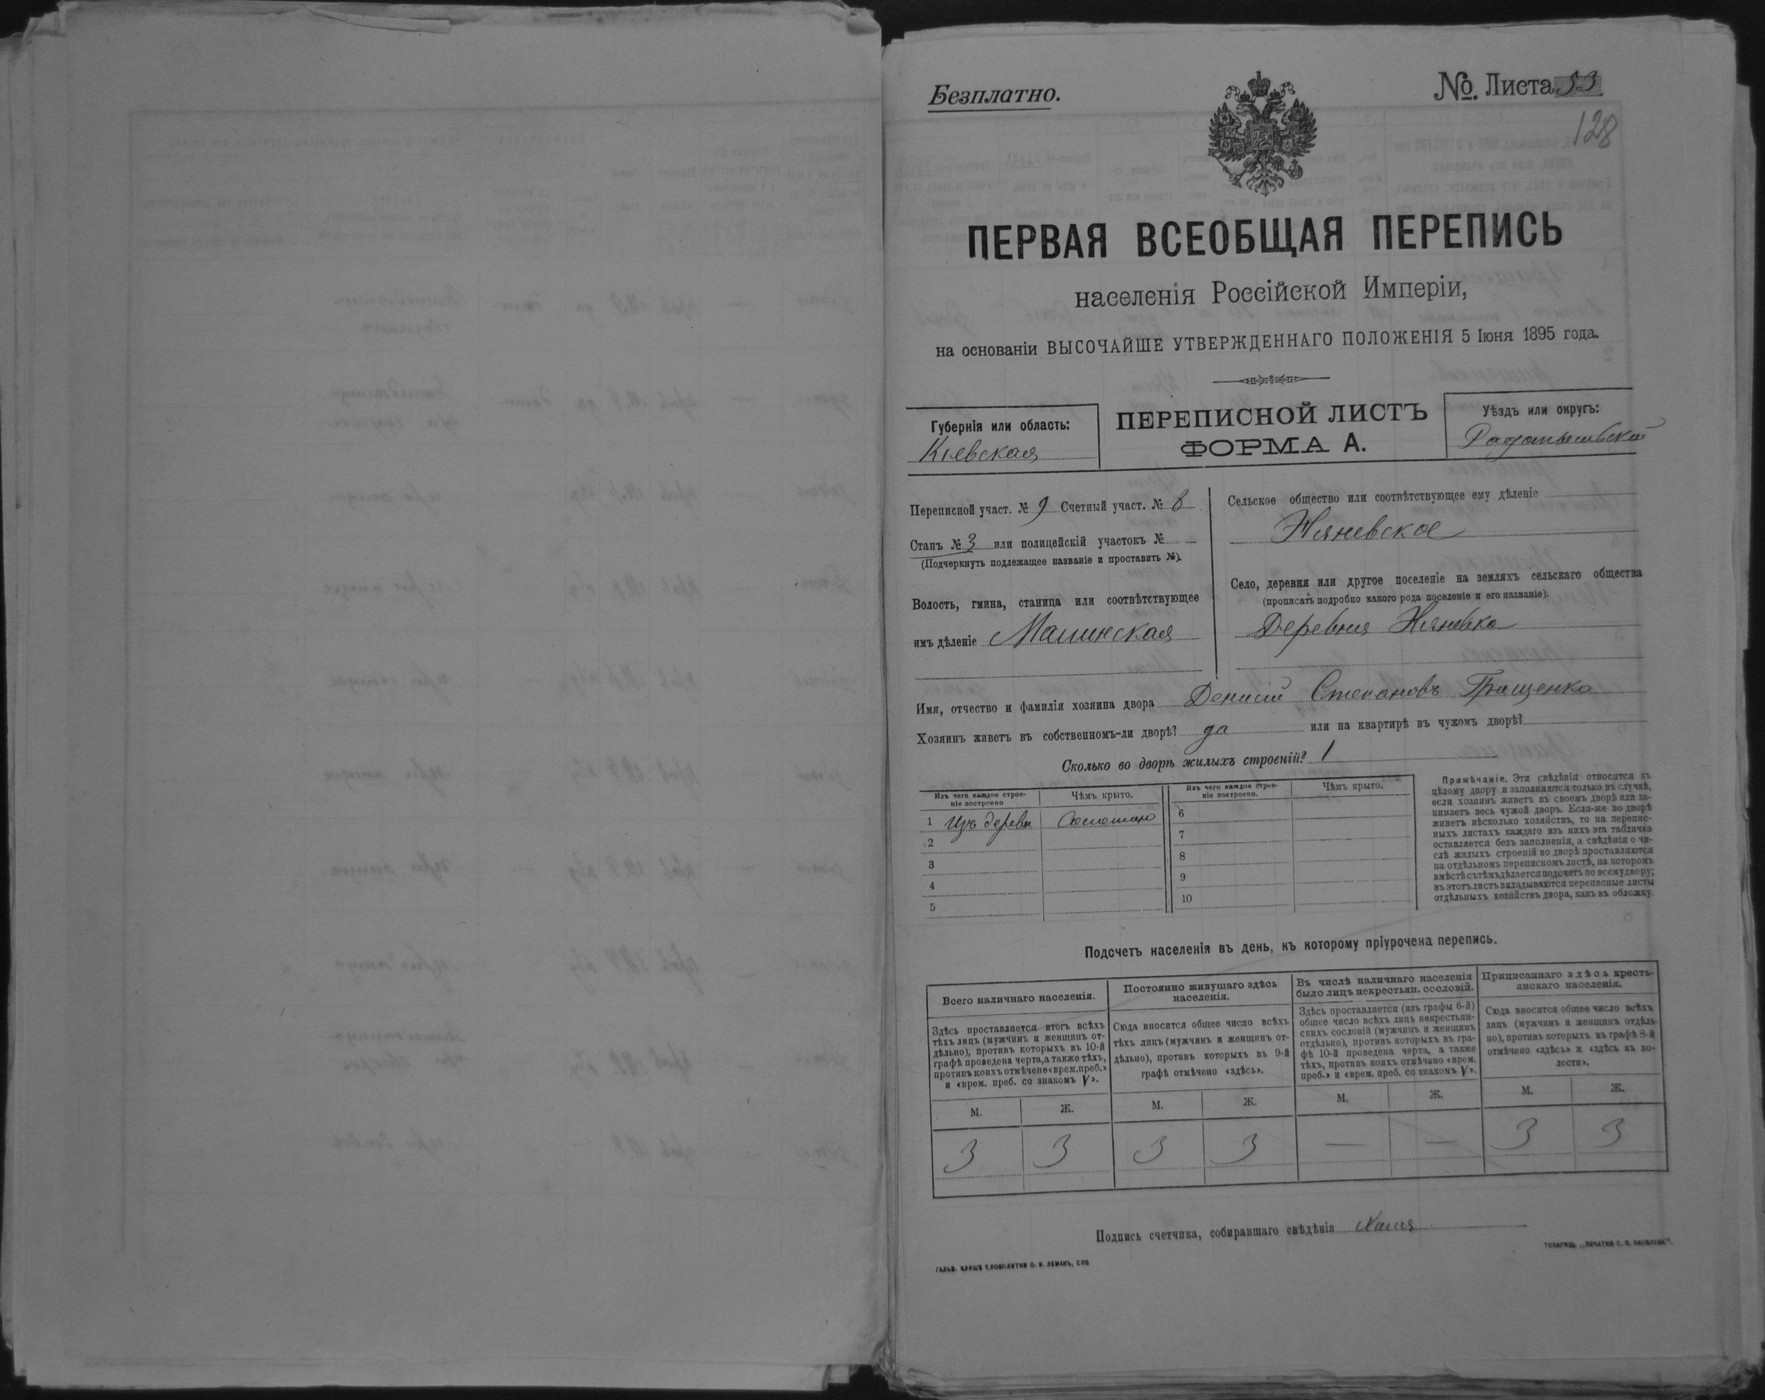 Безплатно.
№ Листа 53
128
ПЕРВАЯ ВСЕОБЩАЯ ПЕРЕПИСЬ
населенія Россійской Имперіи,
на основаніи ВЫСОЧАЙШЕ УТВЕРЖДЕННАГО ПОЛОЖЕНІЯ 5 Іюня 1895 года.
Губернія или область:
Кіевская
ПЕРЕПИСНОЙ ЛИСТЪ
ФОРМА А.
Уѣздъ или округъ:
Радомысльскій
Переписной участ. № 9 Счетный участ. № 8
Станъ № 3 или полицейскій участокъ №
(Подчеркнуть подлежащее названіе и проставить №).
Волость, гмина, станица или соотвѣтствующее
имъ дѣленіе Малинская
Сельское общество или соотвѣтствующее ему дѣленіе
Няневское
Село, деревня или другое поселеніе на земляхъ сельскаго общества
(прописать подробно какого рода поселеніе и его названіе).
Деревня Няневка
Имя, отчество и фамилія хозяина двора Денисій Степановъ Грищенко
Хозяинъ живетъ въ собственномъ-ли дворѣ? да или на квартирѣ въ чужомъ дворѣ?
Сколько во дворѣ жилыхъ строеній? 1
Изъ чего каждое строе-
ніе построено
Чѣмъ крыто.
Изъ чего каждое строе-
ніе построено.
Чѣмъ крыто.
1 Изъ дерева Соломою
2
3
4
5
6
7
8
9
10
Примѣчаніе. Эти свѣдѣнія относятся къ
цѣлому двору и заполняются только въ случаѣ,
если хозяинъ живетъ въ своемъ дворѣ или за-
нимаетъ весь чужой дворъ. Если-же во дворѣ
живетъ нѣсколько хозяйствъ, то на перепис-
ныхъ листахъ каждаго изъ нихъ эта табличка
оставляется безъ заполненія, а свѣдѣнія о чи-
слѣ жилыхъ строеній во дворѣ проставляются
на отдѣльномъ переписномъ листѣ, на которомъ
вмѣстѣ съ тѣмъ дѣлается подсчетъ по всему двору;
въ этотъ листъ вкладываются переписные листы
отдѣльныхъ хозяйствъ двора, какъ въ обложку.
Подсчетъ населенія въ день, къ которому пріурочена перепись.
Всего наличнаго населенія.
Здѣсь проставляется итогъ всѣхъ
тѣхъ лицъ (мужчинъ и женщинъ от-
дѣльно), противъ которыхъ въ 10-й
графѣ проведена черта, а также тѣхъ,
противъ коихъ отмѣчено «врем. преб.»
и «врем. преб. со знакомъ V».
Постоянно живущаго здѣсь
населенія.
Сюда вносится общее число всѣхъ
тѣхъ лицъ (мужчинъ и женщинъ от-
дѣльно), противъ которыхъ въ 9-й
графѣ отмѣчено «здѣсь».
Въ числѣ наличнаго населенія
было лицъ некрестьян. сословій.
Здѣсь проставляется (изъ графы 6-й)
общее число всѣхъ лицъ некрестьян-
скихъ сословій (мужчинъ и женщинъ
отдѣльно), противъ которыхъ въ гра-
фѣ 10-й проведена черта, а также
тѣхъ, противъ коихъ отмѣчено «врем.
преб.» и «врем. преб. со знакомъ V».
Приписаннаго здѣсь кресть-
янскаго населенія.
Сюда вносится общее число всѣхъ
лицъ (мужчинъ и женщинъ отдѣль-
но), противъ которыхъ въ графѣ 8-й
отмѣчено «здѣсь» и «здѣсь къ во-
лости».
М. Ж. М. Ж. М. Ж. М. Ж.
3 3 3 3 — — 3 3
Подпись счетчика, собиравшаго свѣдѣнія
ГАЛЬВ. КЛИШЕ СЛОВОЛИТНИ О. И. ЛЕМАНЪ, СПБ
ТОВАРИЩ. „ПЕЧАТНЯ С. П. ЯКОВЛЕВА“.